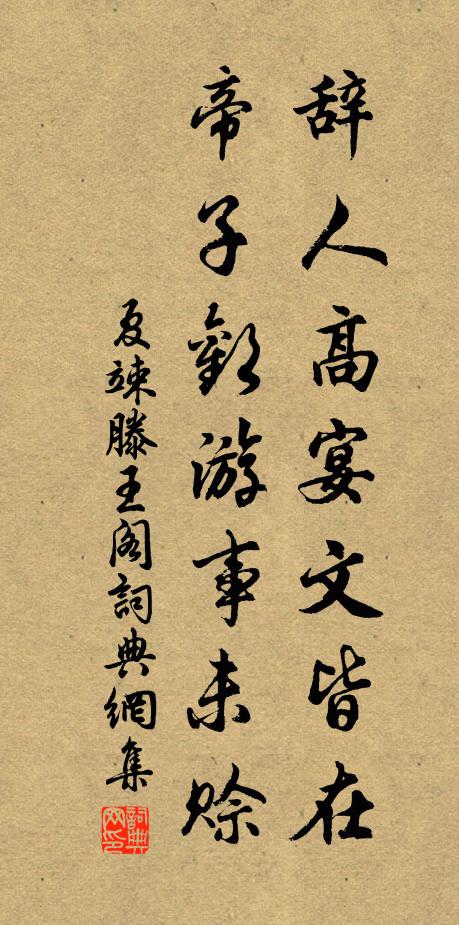 辞人高宴文皆在
帝子歡游事未赊
夏竦滕王阁詞典網集
詞典网印